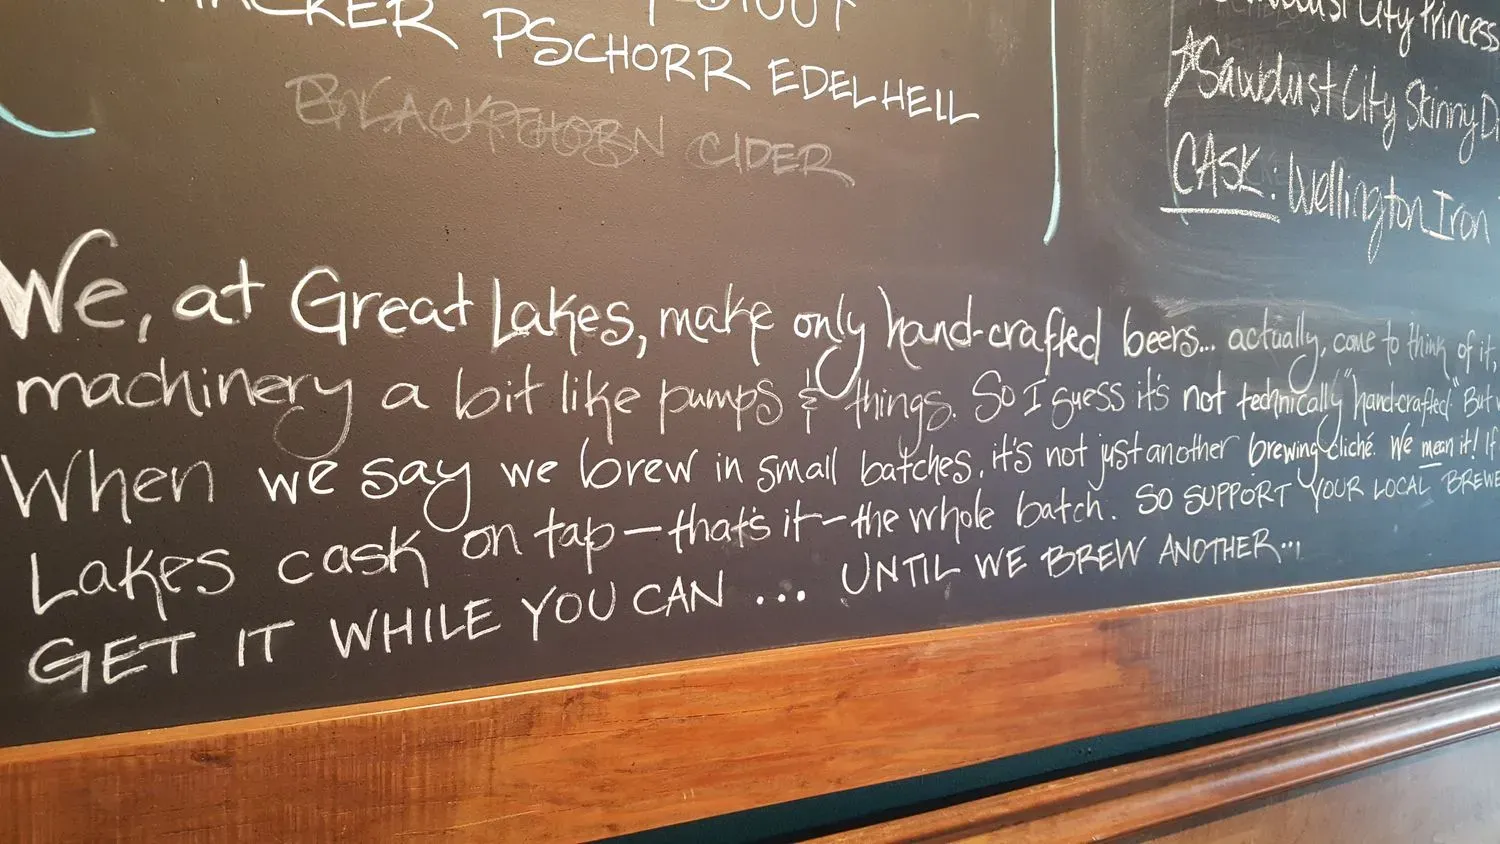 PSCHORR EDELHELL
BLACKTHORN CIDER
City Princess
Sawdust City Skinny
CASK: Wellington Iron
We, at Great Lakes, make only hand-crafted beers... actually, come to think of it,
machinery a bit like pumps & things. So I guess it's not technically "hand-crafted." But
When we say we brew in small batches, it's not just another brewing cliché. We mean it! If
Lakes cask on tap—that's it—the whole batch. SO SUPPORT YOUR LOCAL
GET IT WHILE YOU CAN ... UNTIL WE BREW ANOTHER...